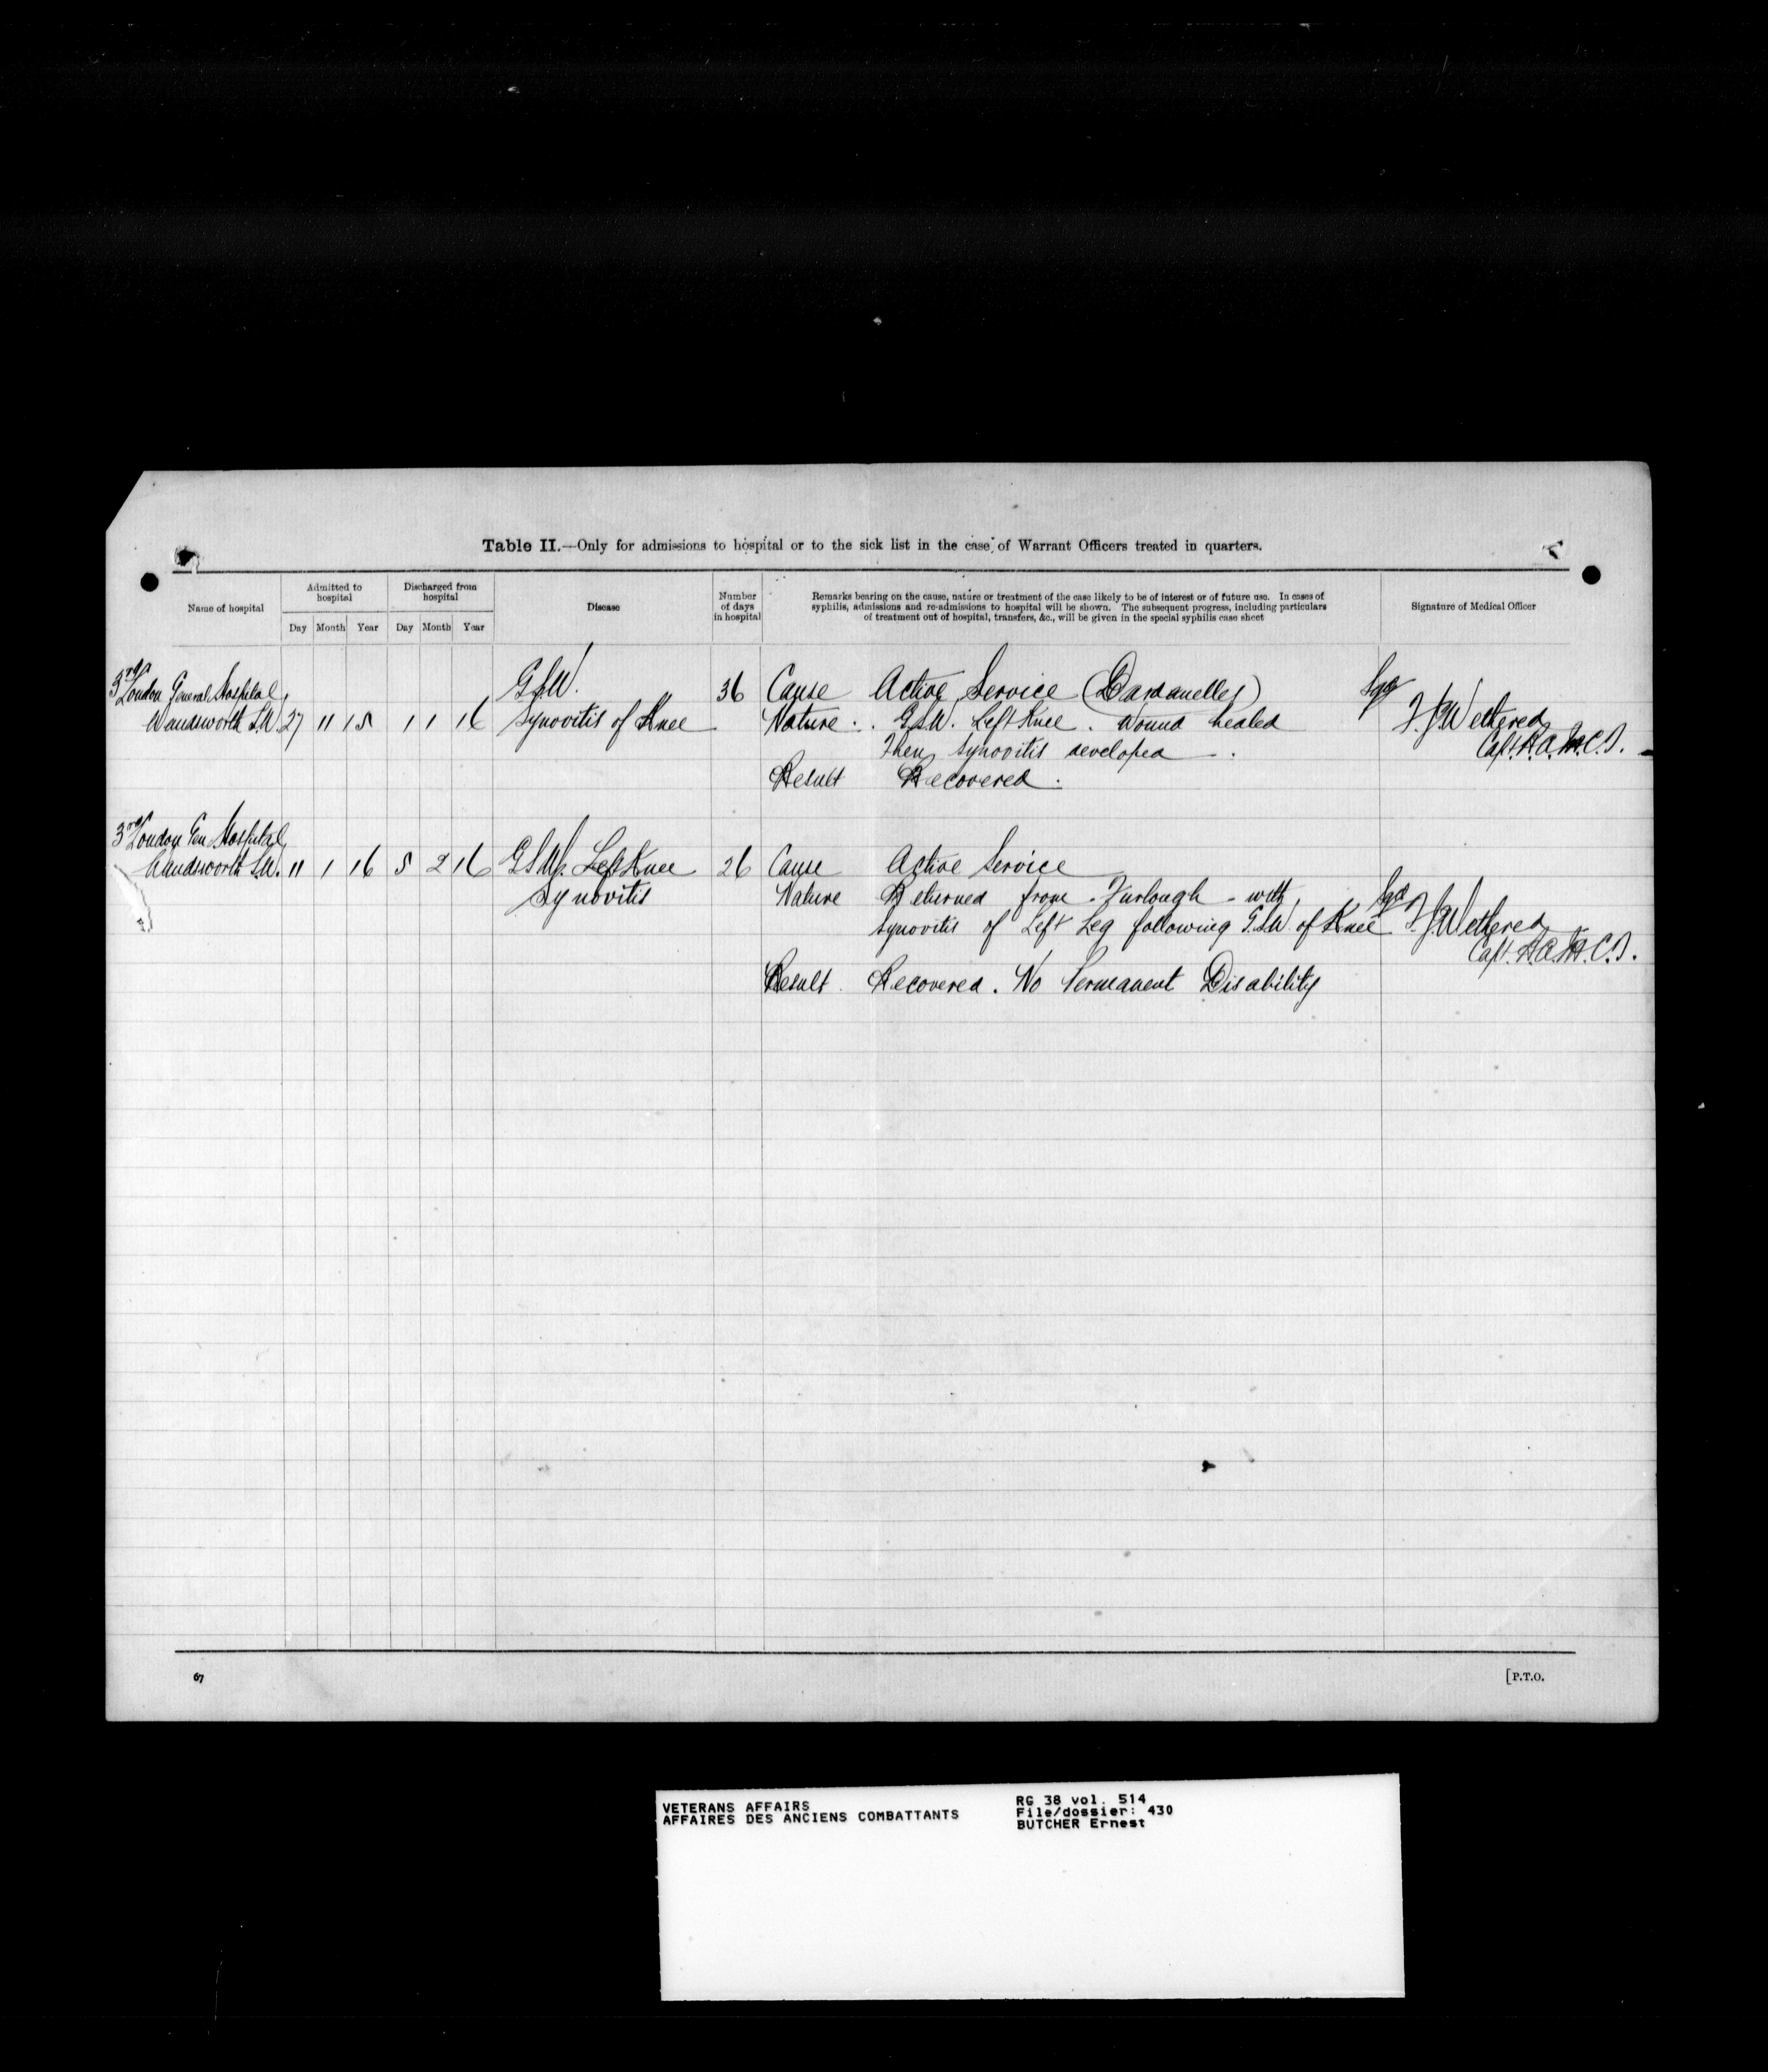 Table II.—Only for admissions to hospital or to the sick list in the case of Warrant Officers treated in quarters.
Name of hospital
Admitted to hospital
Discharged from hospital
Day Month Year Day Month Year
Disease
Number of days in hospital
Remarks bearing on the cause, nature or treatment of the case likely to be of interest or of future use. In cases of
syphilis, admissions and re-admissions to hospital will be shown. The subsequent progress, including particulars
of treatment out of hospital, transfers, &c., will be given in the special syphilis case sheet
Signature of Medical Officer
3rd London General Hospital G.S.W. 36 Cause Active Service (Dardanelles) Sgd
Wandsworth S.W. 27 11 15 1 1 16 Synovitis of Knee Nature. G.S.W. Left Knee. Wound healed F J Wethered
Then synovitis developed. Capt. R.A.M.C.T.
Result Recovered.
3rd London Gen Hospital
Wandsworth S.W. 11 1 16 5 2 16 G.S.W. Left Knee 26 Cause Active Service
Synovitis Nature Returned from Furlough - with Sgd
Synovitis of Left Leg following G.S.W. of Knee F. J Wethered
Capt. R.A.M.C.T.
Result Recovered. No Permanent Disability
67
[P.T.O.
VETERANS AFFAIRS
AFFAIRES DES ANCIENS COMBATTANTS
RG 38 vol. 514
File/dossier: 430
BUTCHER Ernest